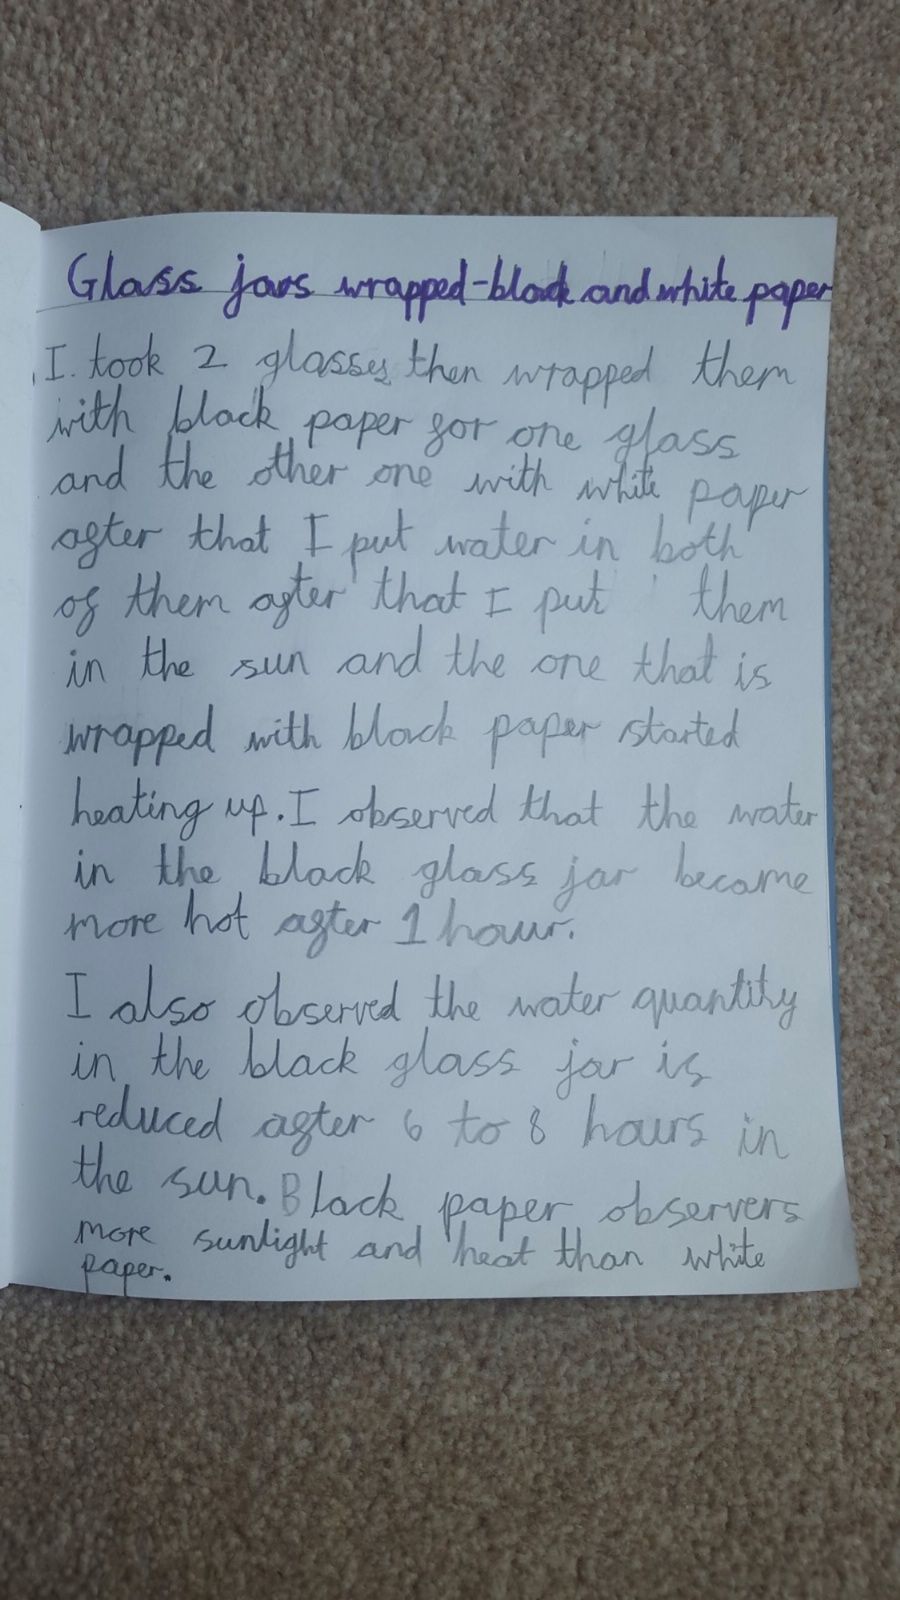 Glass jars wrapped-black and white paper
I. took 2 glasses then wrapped them
with black paper for one glass
and the other one with white paper
after that I put water in both
of them after that I put them
in the sun and the one that is
wrapped with black paper started
heating up. I observed that the water
in the black glass jar became
more hot after 1 hour.
I also observed the water quantity
in the black glass jar is
reduced after 6 to 8 hours in
the sun. Black paper observers
more sunlight and heat than white
paper.